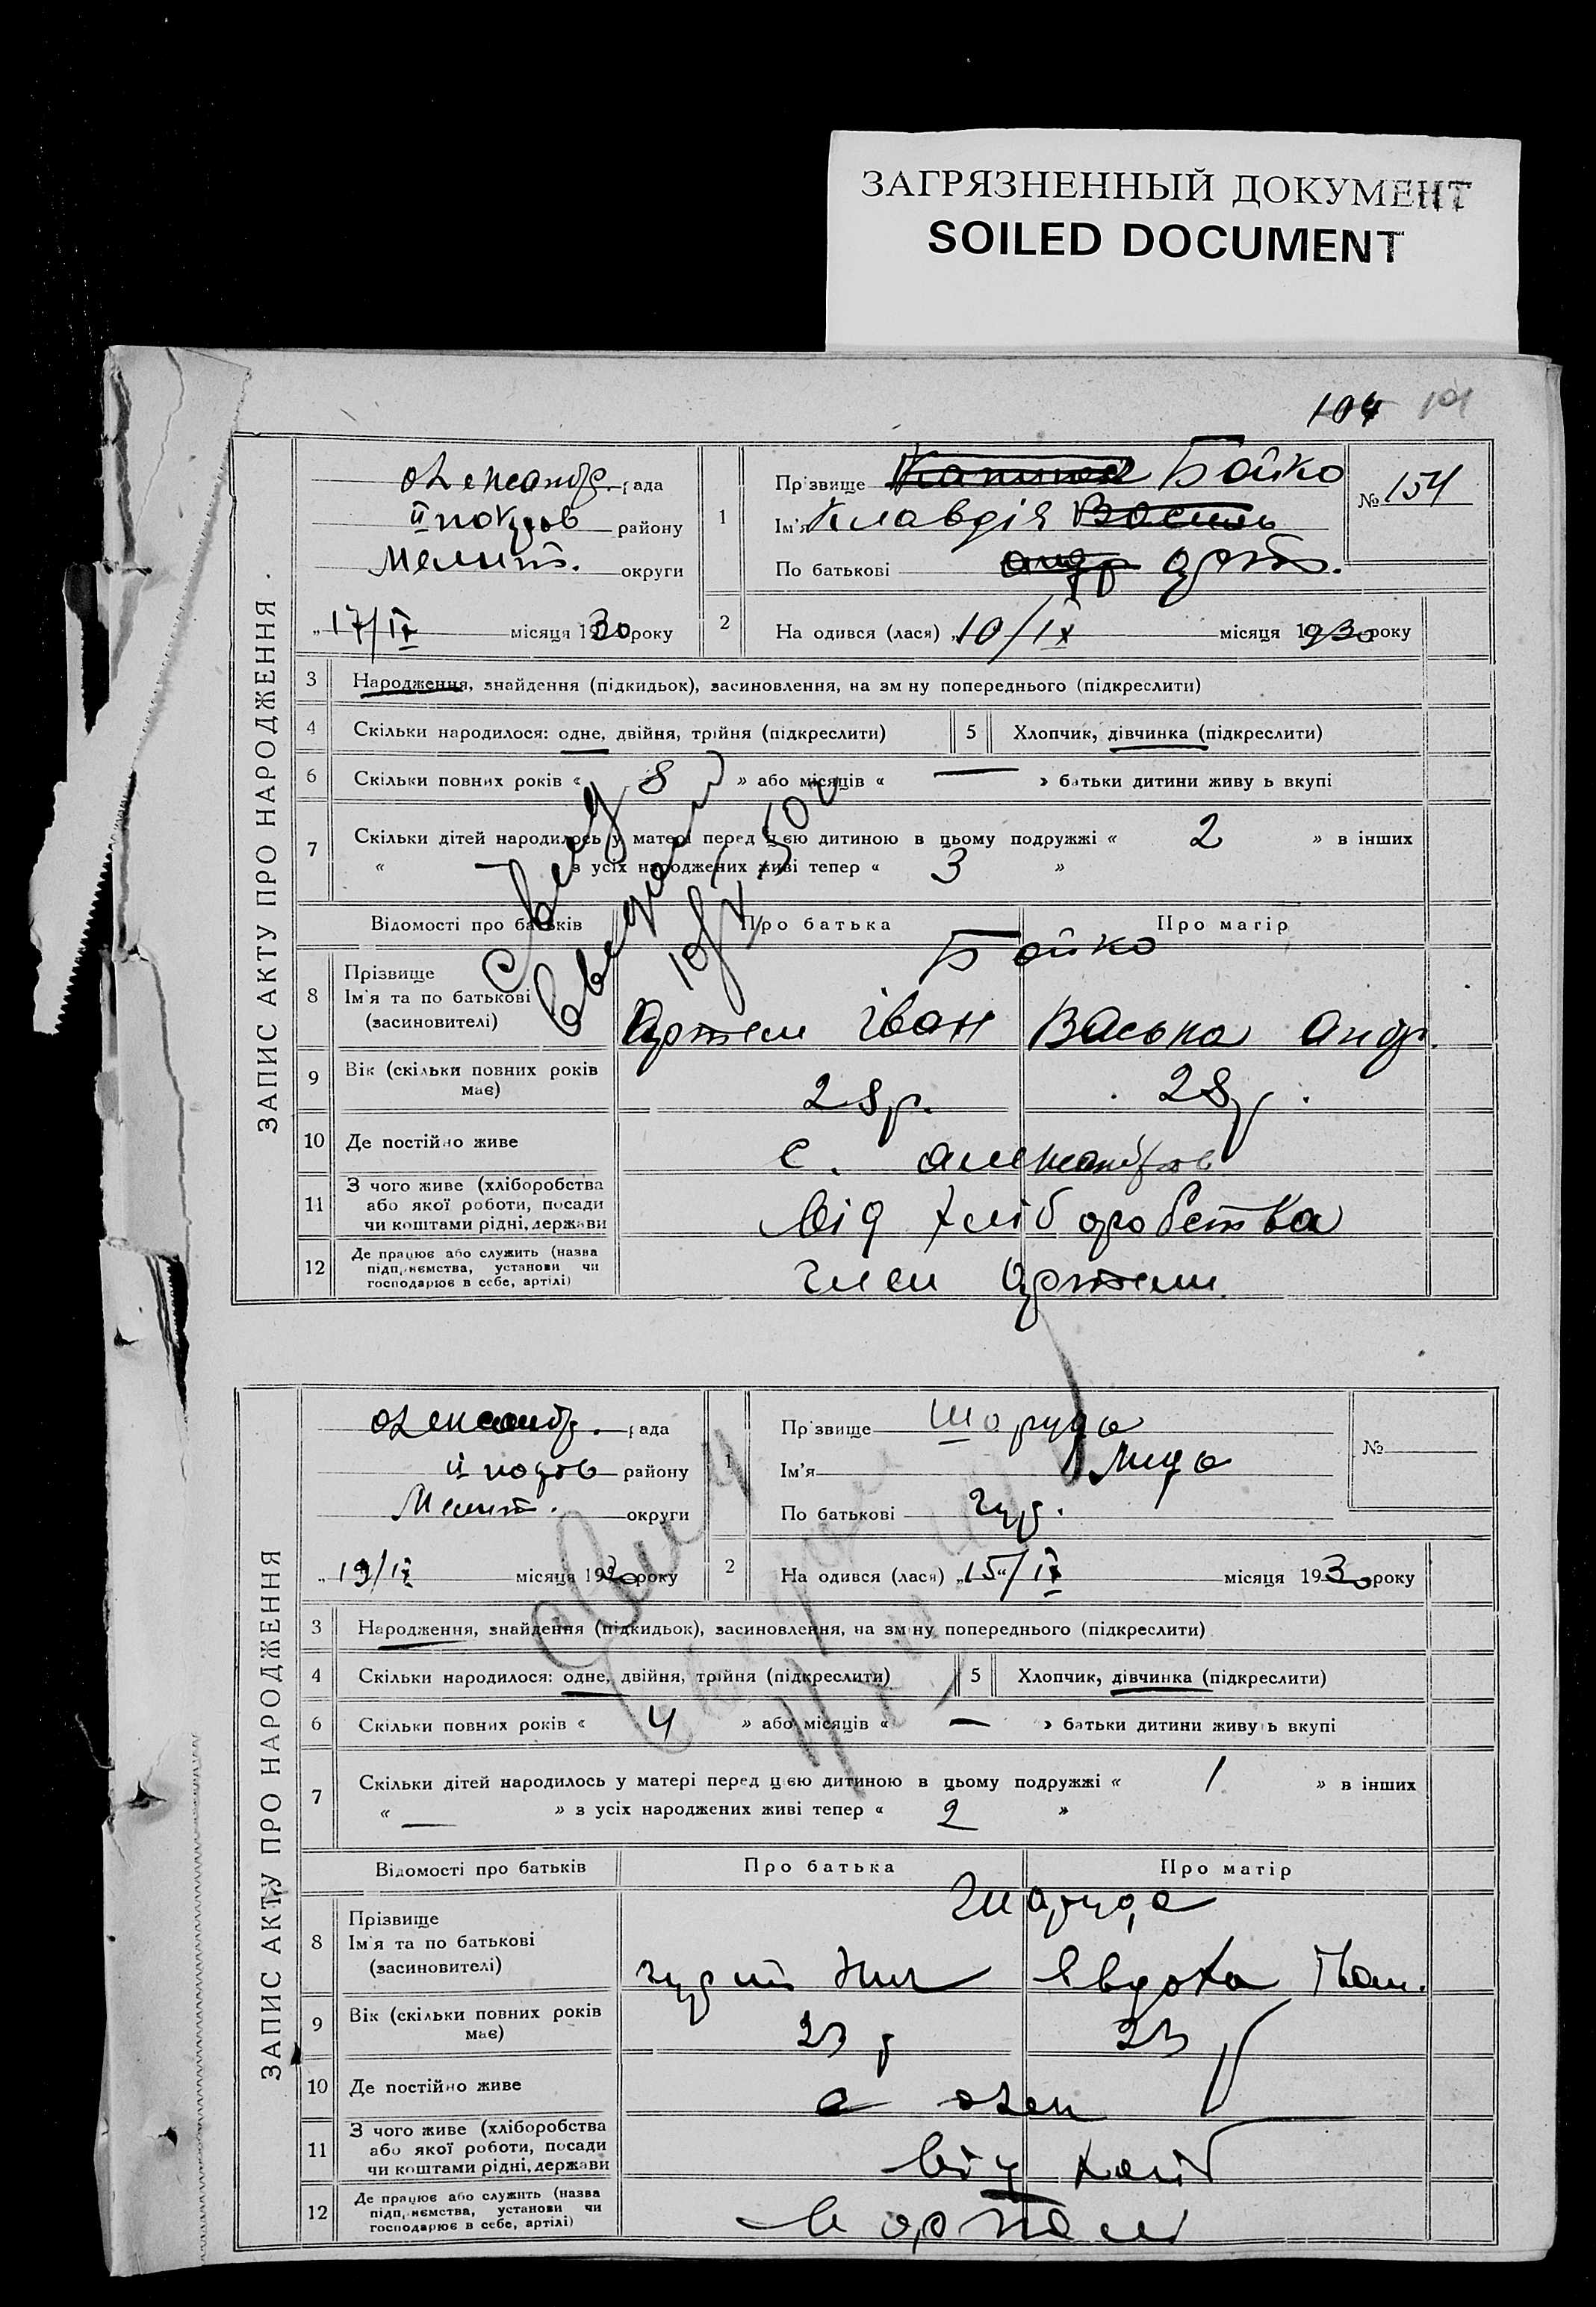 ЗАГРЯЗНЕННЫЙ ДОКУМЕНТ
SOILED DOCUMENT
104 101
ЗАПИС АКТУ ПРО НАРОДЖЕННЯ
Олександр. рада
ІІ покров району
Мелит. округи
„17/IX місяця 1930 року
1
Прізвище Бойко
Ім'я Клавдія Василь
По батькові андр арт.
№ 154
2
На одився (лася) „10/IX місяця 1930 року
3 Народження, знайдення (підкидьок), засиновлення, на зм ну попереднього (підкреслити)
4 Скільки народилося: одне, двійня, трійня (підкреслити) 5 Хлопчик, дівчинка (підкреслити)
6 Скільки повних років « 8 » або місяців « — » батьки дитини живу ь вкупі
7 Скільки дітей народилось у матері перед цією дитиною в цьому подружжі « 2 » в інших
« — з усіх народжених живі тепер « 3 »
Відомості про батьків Про батька Про матір
8 Прізвище
Ім'я та по батькові
(засиновителі)
Бойко
Артем Іван Васька Андр.
9 Вік (скільки повних років має) 28 р. 28 р.
10 Де постійно живе с. Александров
11 З чого живе (хліборобства або якої роботи, посади чи коштами рідні, держави від хліборобства
12 Де працює або служить (назва підп,иємства, установи чи господарює в себе, артілі) член Артели
ЗАПИС АКТУ ПРО НАРОДЖЕННЯ
Олександр. рада
ІІ покров району
Мелит. округи
„19/IX місяця 1930 року
1
Прізвище Шаруда
Ім'я Лида
По батькові
№
2
На одився (лася) „15"/IX місяця 1930 року
3 Народження, знайдення (підкидьок), засиновлення, на зм ну попереднього (підкреслити)
4 Скільки народилося: одне, двійня, трійня (підкреслити) 5 Хлопчик, дівчинка (підкреслити)
6 Скільки повних років « 4 » або місяців « — » батьки дитини живу ь вкупі
7 Скільки дітей народилось у матері перед цією дитиною в цьому подружжі « 1 » в інших
« — » з усіх народжених живі тепер « 2 »
Відомості про батьків Про батька Про матір
8 Прізвище
Ім'я та по батькові
(засиновителі)
Шаруда
Явдоха
9 Вік (скільки повних років має) 23 р 23 р
10 Де постійно живе с Олек
11 З чого живе (хліборобства або якої роботи, посади чи коштами рідні, держави від хліб
12 Де працює або служить (назва підп,иємства, установи чи господарює в себе, артілі) в артелі